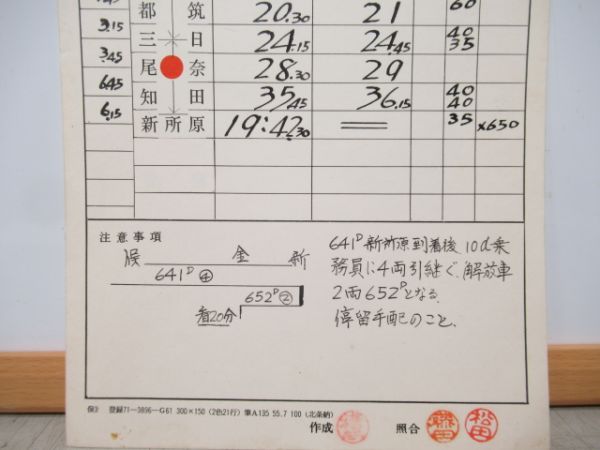 都筑 20.30 21 60
3.15
三ヶ日 24.15 24.45 40 35
3.45
尾奈 28.30 29
6.45
知波田 35.45 36.15 40 40
6.15
新所原 19:42.30 = 35 ×650
注意事項
金 新
641D④
652D②
着20分
641D 新所原到着後 10d乗
務員に4両引継ぐ、解放車
2両652Dとなる。
停留手配のこと。
登録71-3896-G61 300×150 (2色21行) 筆A.135 55.7 100 (北条納)
作成 照合 松田